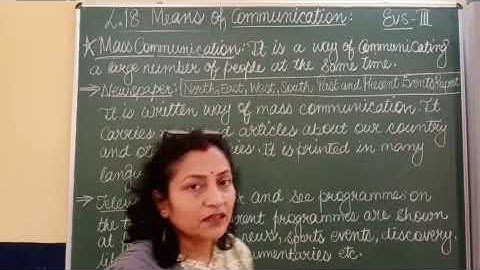 L.18 Means of Communication: EVS-III
*Mass Communication: It is a way of Communicating
a large number of people at the same time.
→ Newspaper: (North, East, West, South, Past and Present Events Report
It is written way of mass communication. It
carries and articles about our country
and ot ies. It is printed in many
langu
→ Telev and see programmes on
the t rent programmes are shown
at news, sports events, discovery,
umentaries etc.